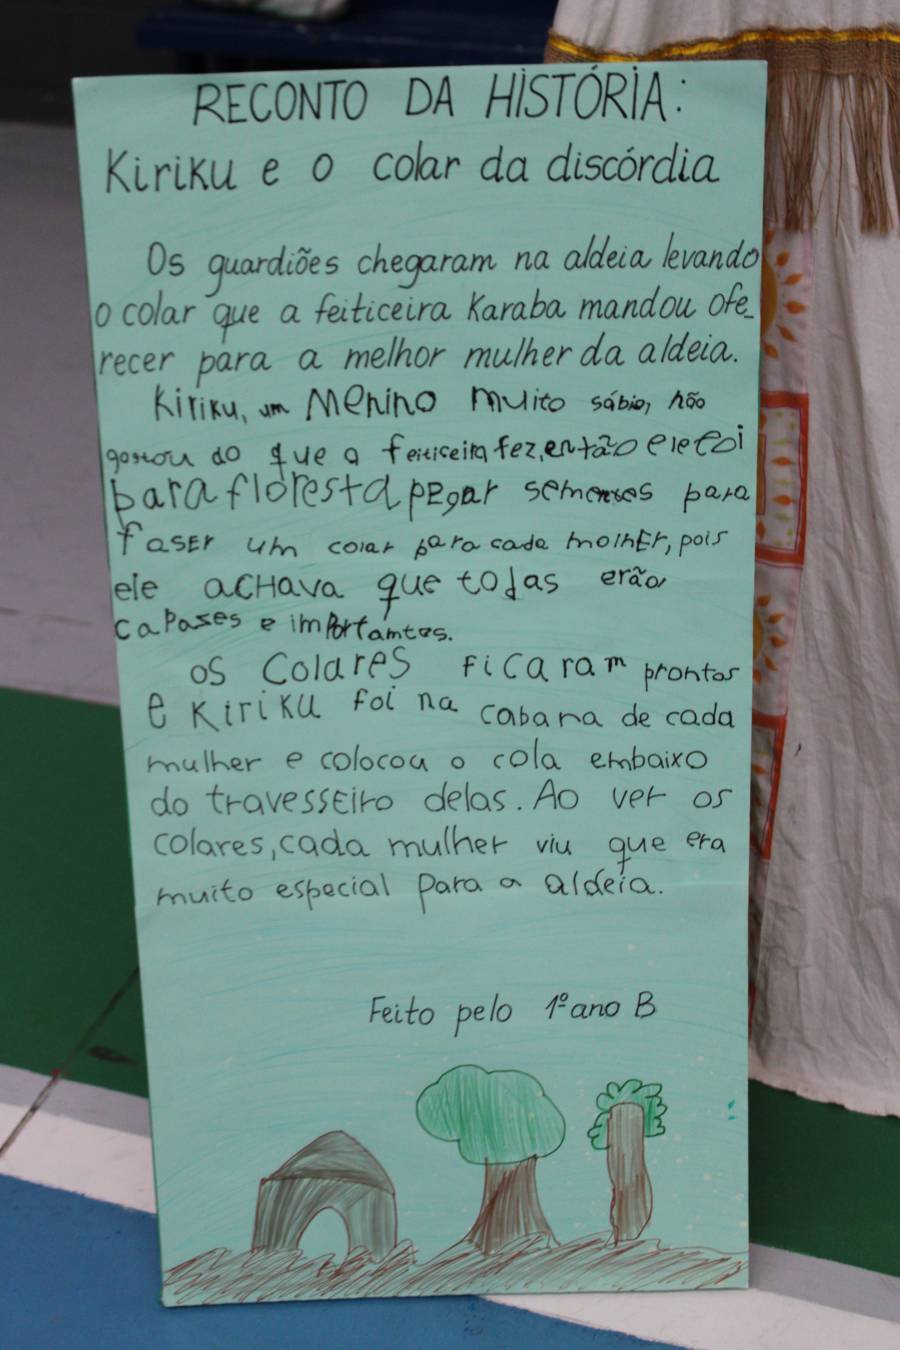 RECONTO DA HISTÓRIA:
Kiriku e o colar da discórdia
Os guardiões chegaram na aldeia levando
o colar que a feiticeira Karaba mandou ofe_
recer para a melhor mulher da aldeia.
Kiriku, um menino muito sábio, não
gostou do que a feiticeira fez, então ele foi
para floresta pegar sementes para
faser um colar para cada molher, pois
ele achava que todas erão
capases e importamtes.
os colares ficaram prontos
e Kiriku foi na cabana de cada
mulher e colocou o cola embaixo
do travesseiro delas. Ao ver os
colares, cada mulher viu que era
muito especial para a aldeia.
Feito pelo 1º ano B